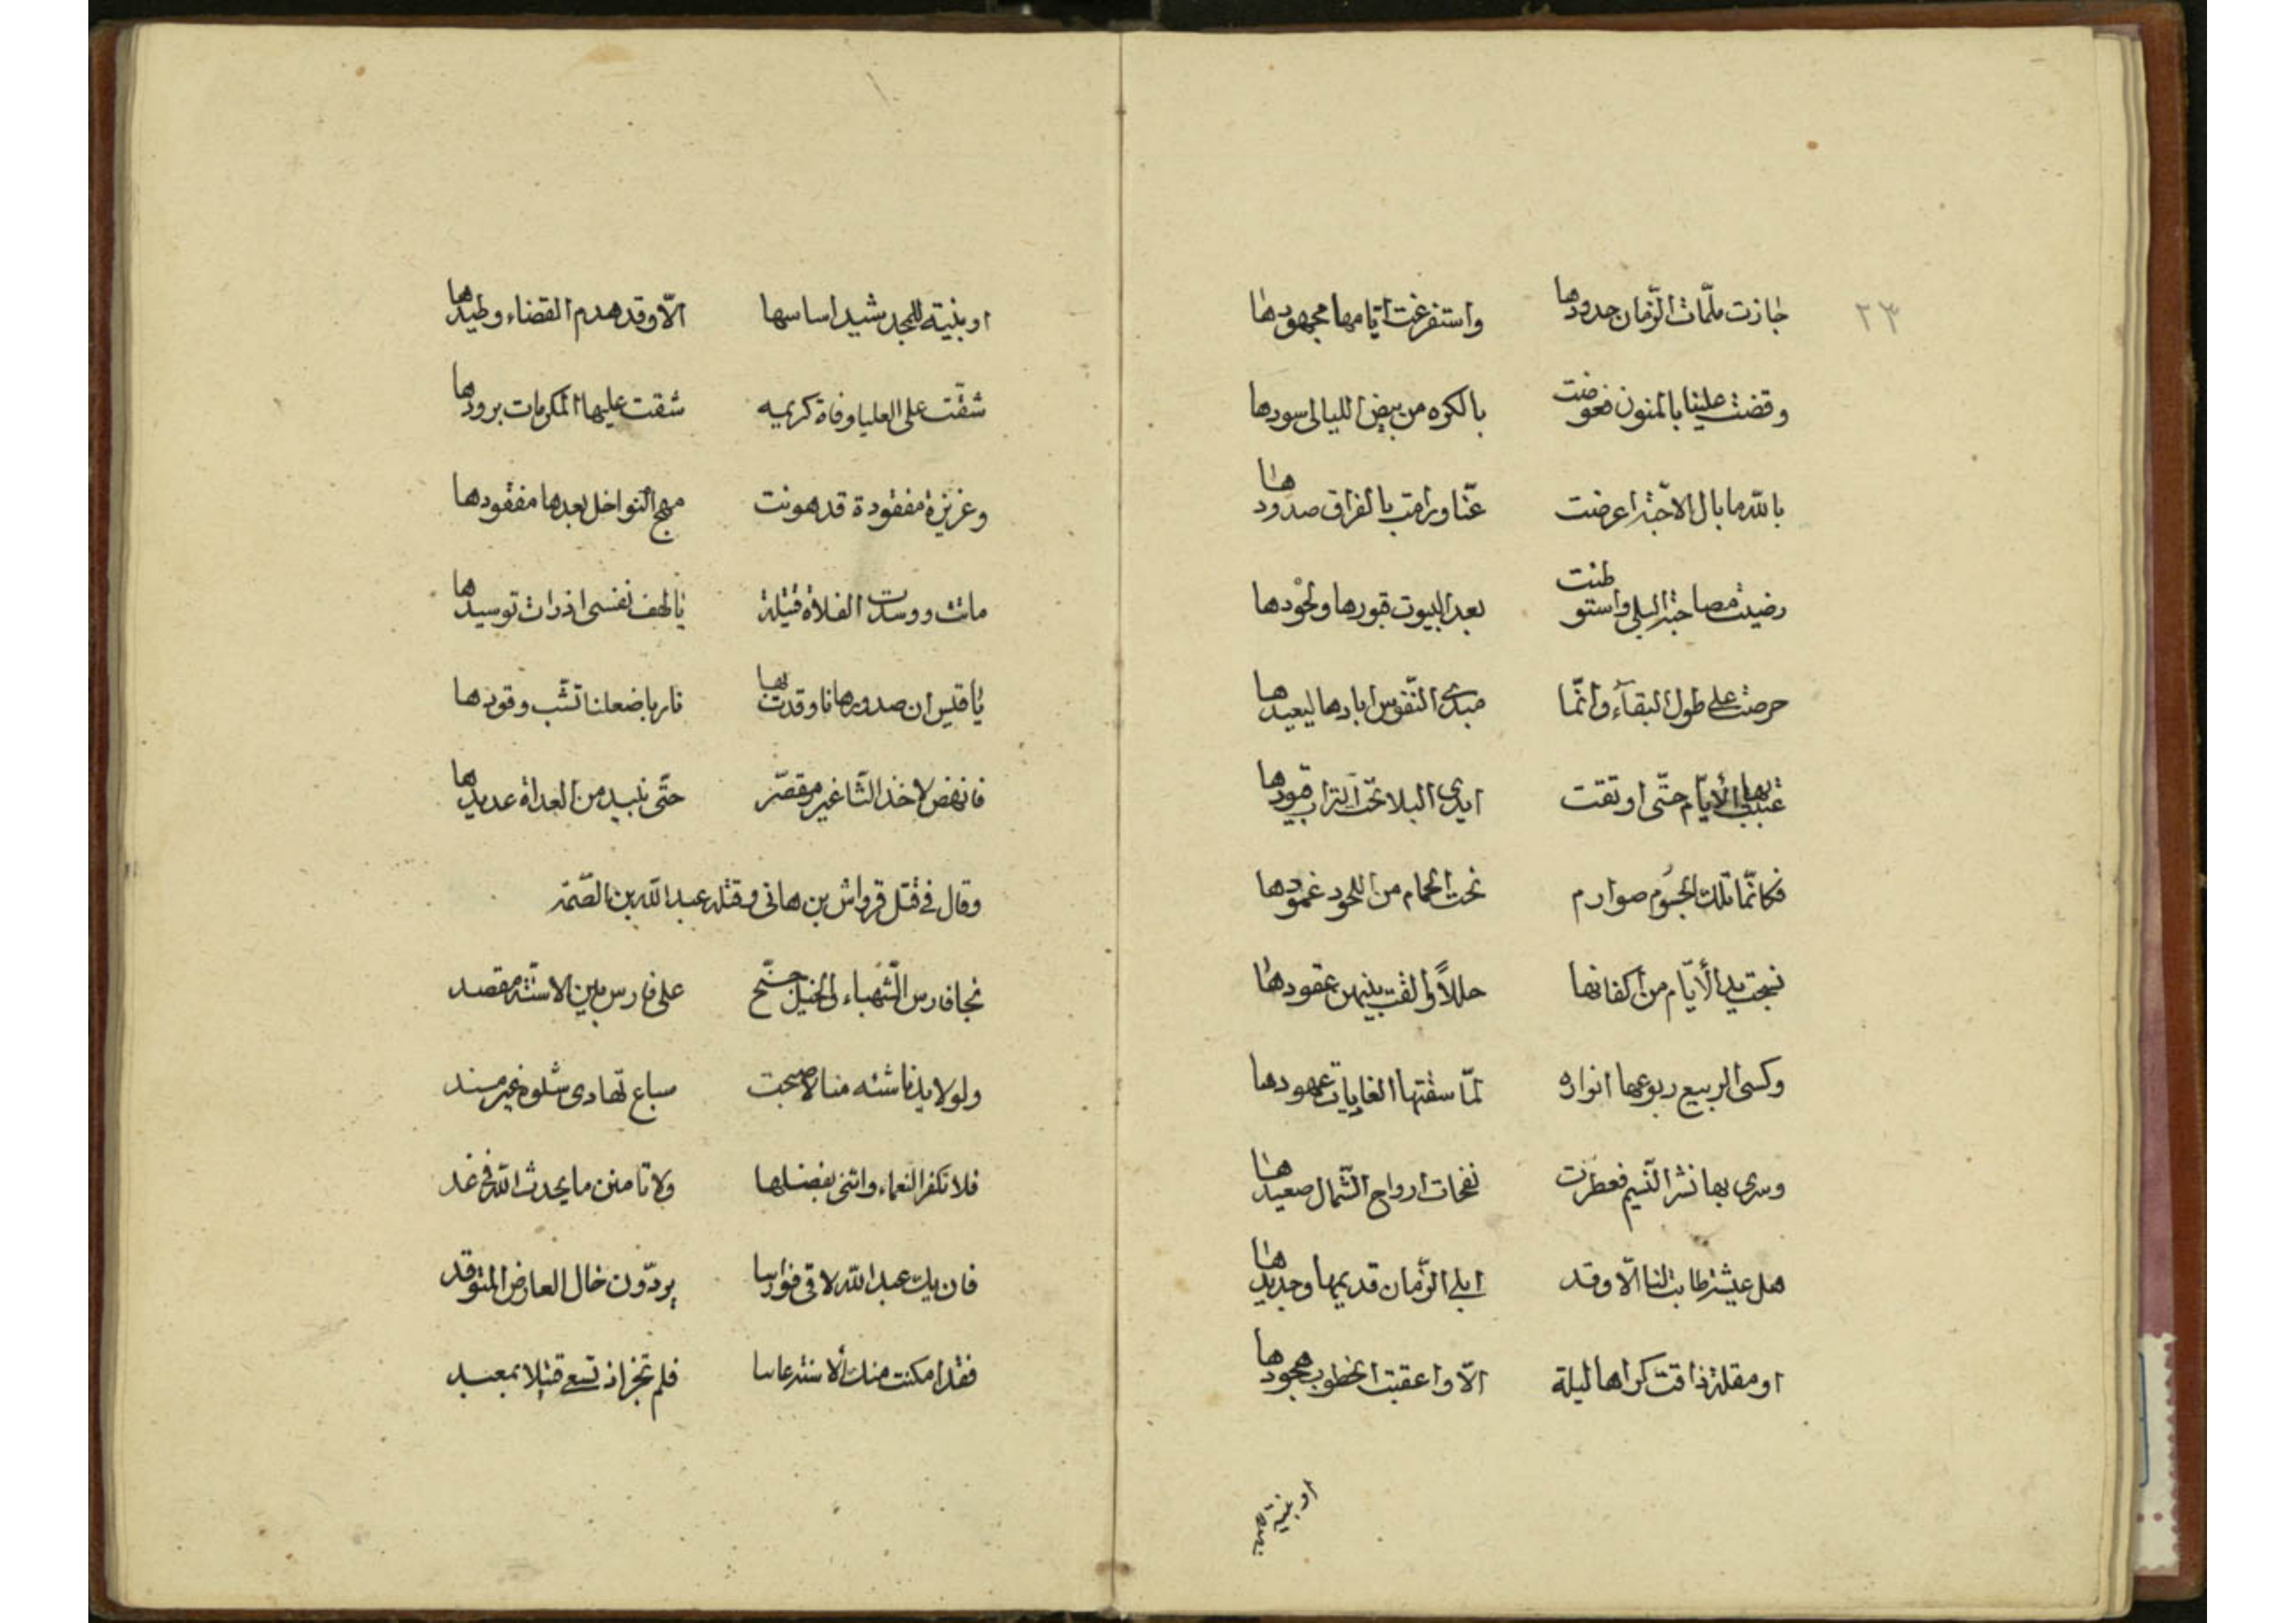 ٢٣
جازت ملمّات الزّمان حدودها واستفرغت ايّامها مجهودها
وقضت علينا بالمنون فعوضت بالكره من بيض الليالى سودها
بالله ما بال الاحبّة اعرضت عنّا ورامت بالفراق صدودها
رضيت مصاحبة البلى واستوطنت بعد البيوت قبورها ولحودها
حرصت على طول البقاء وانّما مبدئ النّفوس ابادها ليعيدها
عبثت بها الأيّام حتّى اوثقت ايدى البلا تحت التراب قيودها
فكانّما تلك الجسوم صوارم تحت الحمام من اللحود غمودها
نسجت يد الأيّام من اكفانها حللاً والقت بينهن عقودها
وكسى الربيع ربوعها انواره لمّا سقتها الغاديات عهودها
وسرى بها نشر النّسيم فعطرت نفحات ارواح الشّمال صعيدها
هل عيشة طابت لنا الّا وقد ابلى الزّمان قديمها وجديدها
او مقلة ذاقت كراها ليلة الّا واعقبت الخطوب هجودها
او بنية
او بنية للمجد شيد اساسها الّا وقد هدم القضاء وطيدها
شقّت على العليا وفاة كريمه شقت عليها المكرمات برودها
وعزيزة مفقودة قد هونت مهج النوافل بعدها مفقودها
ماتت ووسدت الفلاة قتيلة يا لهف نفسى اذ رات توسيدها
يا قيس ان صدورها نا وقدت بها نار باضعلنا تشّب وقودها
فانهض لاخذ الثّا غير مقصّر حتّى نبيد من العداة عديدها
وقال فى قتل قرواش بن هانى وقتله عبد الله بن الصّمّة
نجا فارس الشّهباء والخيل جنّح على فارس بين الاسنّة مقصد
ولولا يدنا شته منا لاصبحت سباع تهادى شلوه غير مسند
فلا تكفر النعماء واثنى بفضلها ولا تامنن ما يحدث الله فى غد
فان يك عبد الله لاقى فوارسا يردّون خال العارض المتوقد
فقد امكنت منك ألاسنة عانيا فلم تجز اذ تسعى قتيلا بمعبد